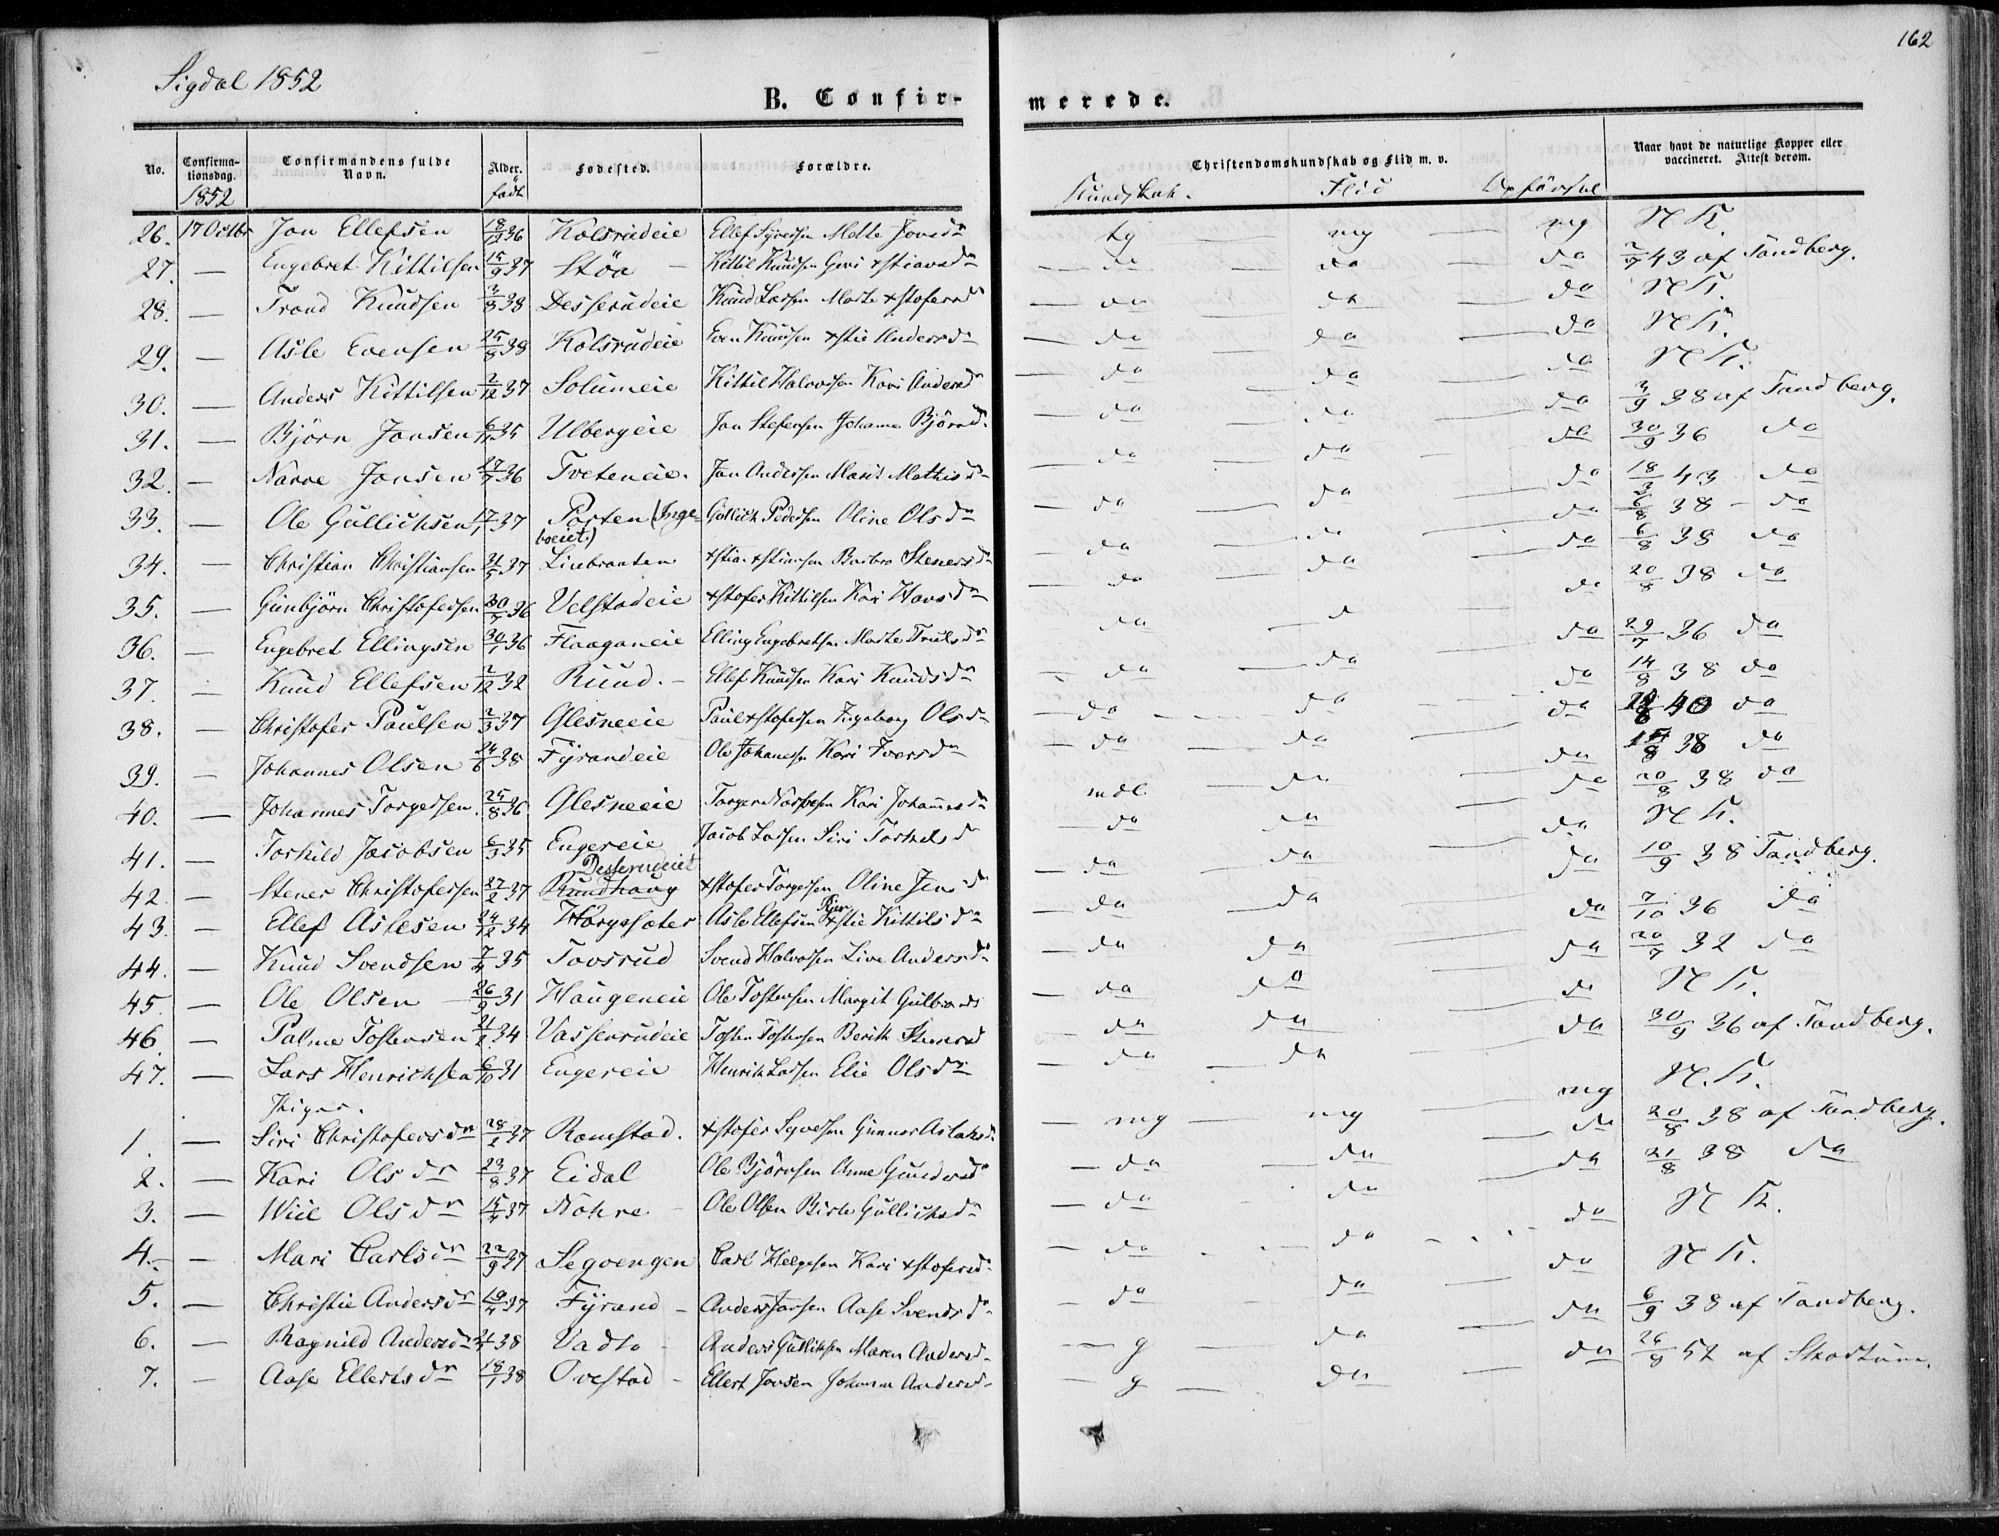 162
Sigdal 1852
B. Confir-merede.
No. Confirmationsdag. Confirmandens fulde Navn. Alder. Fødested. Forældre. Christendomskundskab og Flid m. v. Naar havt de naturlige Kopper eller vaccineret. Attest derom.
1852 født Kundskab. Flid Opførsel
26. 17 Octbr Jon Ellefsen 18/12 36 Kolsrudeie Ellef Syversen Mette Jonsdr tg mg mg N K.
27. — Engebret Kittilsen 15/9 37 Støa — Kittil Knudsen Guri Xstiansdr — da — da — da 2/7 43 af Tandberg.
28. — Trond Knudsen 3/3 38 Desserudeie Knud Larsen Marte Xstofersdr — da — da — da N K.
29. — Asle Evensen 25/8 38 Kolsrudeie Even Knudsen Xstie Andersdr — da — da — da N K.
30. — Anders Kittilsen 2/12 37 Solumeie Kittil Halvorsen Kari Andersdr — da — da — da N K.
31. — Bjørn Jonsen 35 Ulbergeie Jon Stefensen Johanne Bjørnsdr — da — da — da 3/9 38 af Tandberg.
32. — Narve Jonsen 27/7 36 Tveteneie. Jon Andersen Marit Mathisdr — da — da — da 30/9 36 da
33. — Ole Gullichsen 37 Porten (Ingeboeiet.) Gullich Pedersen Oline Olsdr — da — da — da 18/3 43 — da
34. — Christian Christiansen 21/5 37 Linbraaten Xstian Xstiansen Barbro Stenersdr — da — da — da 6/8 38 — da
35. — Gunbjørn Christofersen 36 Velstadeie Xstofer Kittilsen Kari Hansdr — da — da — da 6/8 38 da
36. — Engebret Ellingsen 30/1 36 Flaaganeie Elling Engebretsen Marte Trulsdr — da — d — da 20/8 38 da
37. — Knud Ellefsen 2/12 32 Ruud. — Ellef Knudsen Kari Knudsdr — da — da — da 29/7 36 da
38. — Christofer Paulsen 2/3 37 Glesneeie Paul Xstofersen Ingeborg Olsdr — da — da — da 14/8 38 da
39. — Johannes Olsen 24/6 38 Fyrandeie Ole Johanesn Kari Iversdr — da — da — da 40 da
40. — Johannes Torgersen. 25/8 36 Glesneeie Torger Narvesen Kari Johannesdr mdl. — da — da 38 da
41. — Torkild Jacobsen 6/3 35 Engereie Jacob Larsen Siri Torkelsdr — da — da — da 20/8 38 da
N K.
42. — Stener Christofersen 27/2 37 Ruudhaug Desserudeiet Xstofer Torgersen Oline Jensdr — da — da — da 10/9 38 Tandberg.
43. — Ellef Aslesen 24/12 34 Horgesæter Asle Ellefsen Xstie Kittilsdr — da — da — da 7/10 36 da
44. — Knud Svendsen 7/4 35 Tovsrud Svend Halvorsen Live Andersdr — da — da — da 20/7 32 da
45. — Ole Olsen — 26/9 31 Haugeneie Ole Tostensen Margit Gulbrands — da — da — da N K.
46. — Palme Tostensen 34 Vasserudeie Tosten Tostensen Berith Stenersd — da — da — da 30/9 36 af Tandberg.
47. — Lars Henrichsen 6/10 31 Engereie Henrik Larsen Elie Olsdr — da — da — mg N. K.
Piger.
1. — Siri Christofersdr 28/2 37 Romstad. Xstofer Syversen Gunnor Aslaksdr — mg — mg — da 20/8 38 af Tandberg.
2. — Kari Olsdr 23/8 37 Eidal Ole Bjørnsen Anne Gundersdr — da — da — da 21/8 38 da
3. — Wiil Olsdr 15/4 37 Nohre — Ole Olsen Birte Gullichsdr — da — da — da N K.
4. — Mari Carlsdr 22/9 37 Segvengen Carl Helgesen Kari Xstofersdr — da — da — da N K.
5. — Christie Andersdr 19/4 37 Fyrand — Anders Jonsen Aase Svendsdr — da — da — da 6/9 38 af Tandberg.
6. — Ragnild Andersdr 38 Vadto — Anders Gullichsen Maren Andersdr — g — da — da 26/8 52 af Skodtunn.
7. — Aase Ellertsdr 18/1 38 Ovestad — Ellert Jonsen Johanne Andersdr — g — da